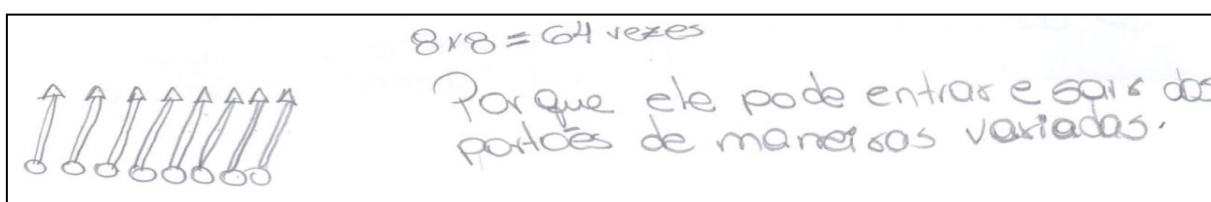 8x8 = 64 vezes
Porque ele pode entrar e sair dos
portões de maneiras variadas.